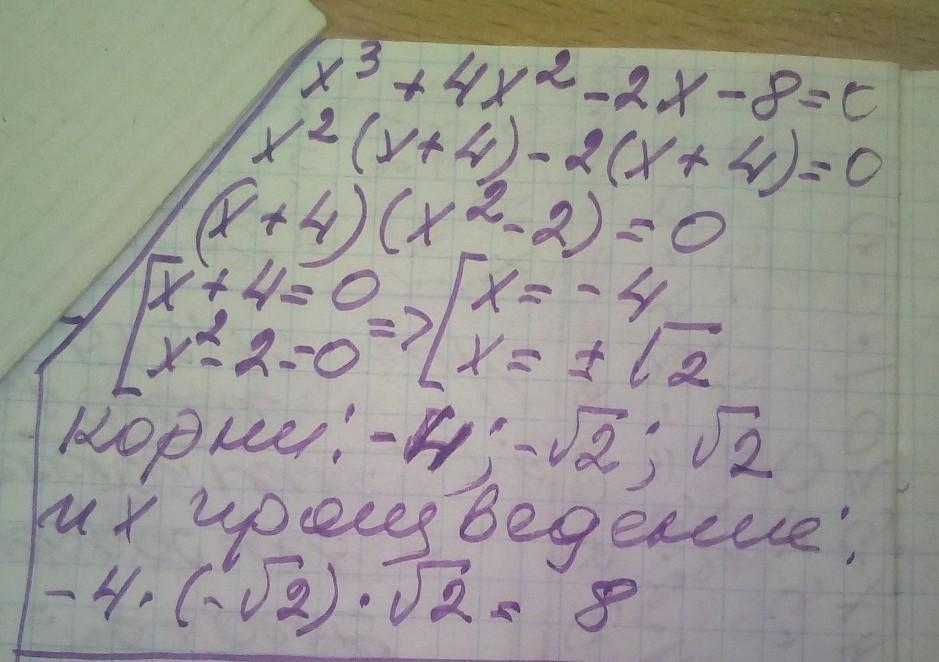 x³ + 4x² - 2x - 8 = 0
x²(x+4) - 2(x+4) = 0
(x+4)(x²-2) = 0
[x+4=0 => [x = -4
[x²-2=0 [x = ±√2
Корни: -4; -√2; √2
их произведение:
-4·(-√2)·√2 = 8